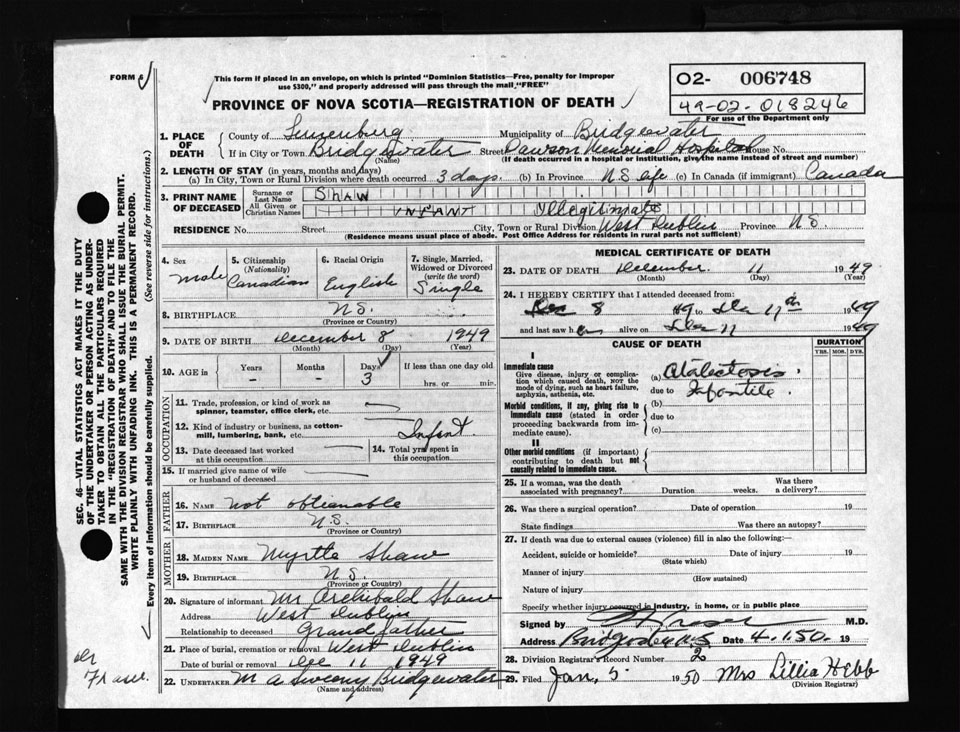 FORM 6
This form if placed in an envelope, on which is printed "Dominion Statistics—Free, penalty for improper
use $300," and properly addressed will pass through the mail "FREE"
PROVINCE OF NOVA SCOTIA—REGISTRATION OF DEATH
O2- 006748
49-02-018246
For use of the Department only
SEC. 46—VITAL STATISTICS ACT MAKES IT THE DUTY
OF THE UNDERTAKER OR PERSON ACTING AS UNDER-
TAKER TO OBTAIN ALL THE PARTICULARS REQUIRED
IN THE "REGISTRATION OF DEATH" AND TO FILE THE
SAME WITH THE DIVISION REGISTRAR WHO SHALL ISSUE THE BURIAL PERMIT.
WRITE PLAINLY WITH UNFADING INK. THIS IS A PERMANENT RECORD.
Every item of information should be carefully supplied. (See reverse side for instructions.)
1. PLACE OF DEATH
County of Lunenburg Municipality of Bridgewater
If in City or Town Bridgewater Street Dawson Memorial Hospital House No.
(Name) (If death occurred in a hospital or institution, give the name instead of street and number)
2. LENGTH OF STAY (in years, months and days)
(a) In City, Town or Rural Division where death occurred 3 days. (b) In Province N S life (c) In Canada (if immigrant) Canada
3. PRINT NAME OF DECEASED
Surname or Last Name SHAW
All Given or Christian Names INFANT Illegitimate
RESIDENCE No. Street City, Town or Rural Division West Dublin Province N S.
(Residence means usual place of abode. Post Office Address for residents in rural parts not sufficient)
4. Sex Male
5. Citizenship (Nationality) Canadian
6. Racial Origin English
7. Single, Married, Widowed or Divorced (write the word) Single
8. BIRTHPLACE N S.
(Province or Country)
9. DATE OF BIRTH December 8 1949
(Month) (Day) (Year)
10. AGE in Years Months Days If less than one day old
- - 3 hrs. or min.
OCCUPATION
11. Trade, profession, or kind of work as
spinner, teamster, office clerk, etc.
12. Kind of industry or business, as cotton-
mill, lumbering, bank, etc. Infant.
13. Date deceased last worked
at this occupation
14. Total yrs spent in
this occupation
15. If married give name of wife
or husband of deceased
FATHER
16. NAME Not obtianable
17. BIRTHPLACE N S.
(Province or Country)
MOTHER
18. MAIDEN NAME Myrtle Shaw
19. BIRTHPLACE N S.
(Province or Country)
20. Signature of informant Mr Archibald Shaw
Address West Dublin
Relationship to deceased Grandfather
21. Place of burial, cremation or removal West Dublin
Date of burial or removal Dec 11 1949
22. UNDERTAKER M A Sweeny Bridgewater
(Name and address)
Dr
Fraser.
MEDICAL CERTIFICATE OF DEATH
23. DATE OF DEATH December. 11 1949
(Month) (Day) (Year)
24. I HEREBY CERTIFY that I attended deceased from:
Dec 8 49 to Dec 11th 1949
and last saw h alive on Dec 11 1949
CAUSE OF DEATH DURATION
YRS. MOS. DYS.
I
Immediate cause
Give disease, injury or compli-
cation which caused death, NOT the
mode of dying, such as heart failure,
asphyxia, asthenia, etc.
(a) Atalectosis.
due to Infantile.
Morbid conditions, if any, giving rise to
immediate cause (stated in order
proceeding backwards from im-
mediate cause).
(b)
due to
(c)
II
Other morbid conditions (if important)
contributing to death but not
causally related to immediate cause.
25. If a woman, was the death
associated with pregnancy? Duration weeks. Was there
a delivery?
26. Was there a surgical operation? Date of operation 19
State findings Was there an autopsy?
27. If death was due to external causes (violence) fill in also the following:—
Accident, suicide or homicide? Date of injury 19
(State which)
Manner of injury
(How sustained)
Nature of injury
Specify whether injury occurred in industry, in home, or in public place
Signed by Fraser M.D.
Address Bridgewater N S Date 4.1.50. 19
28. Division Registrar's Record Number 2
29. Filed Jan, 5 1950 Mrs Lillia Hebb
(Division Registrar)